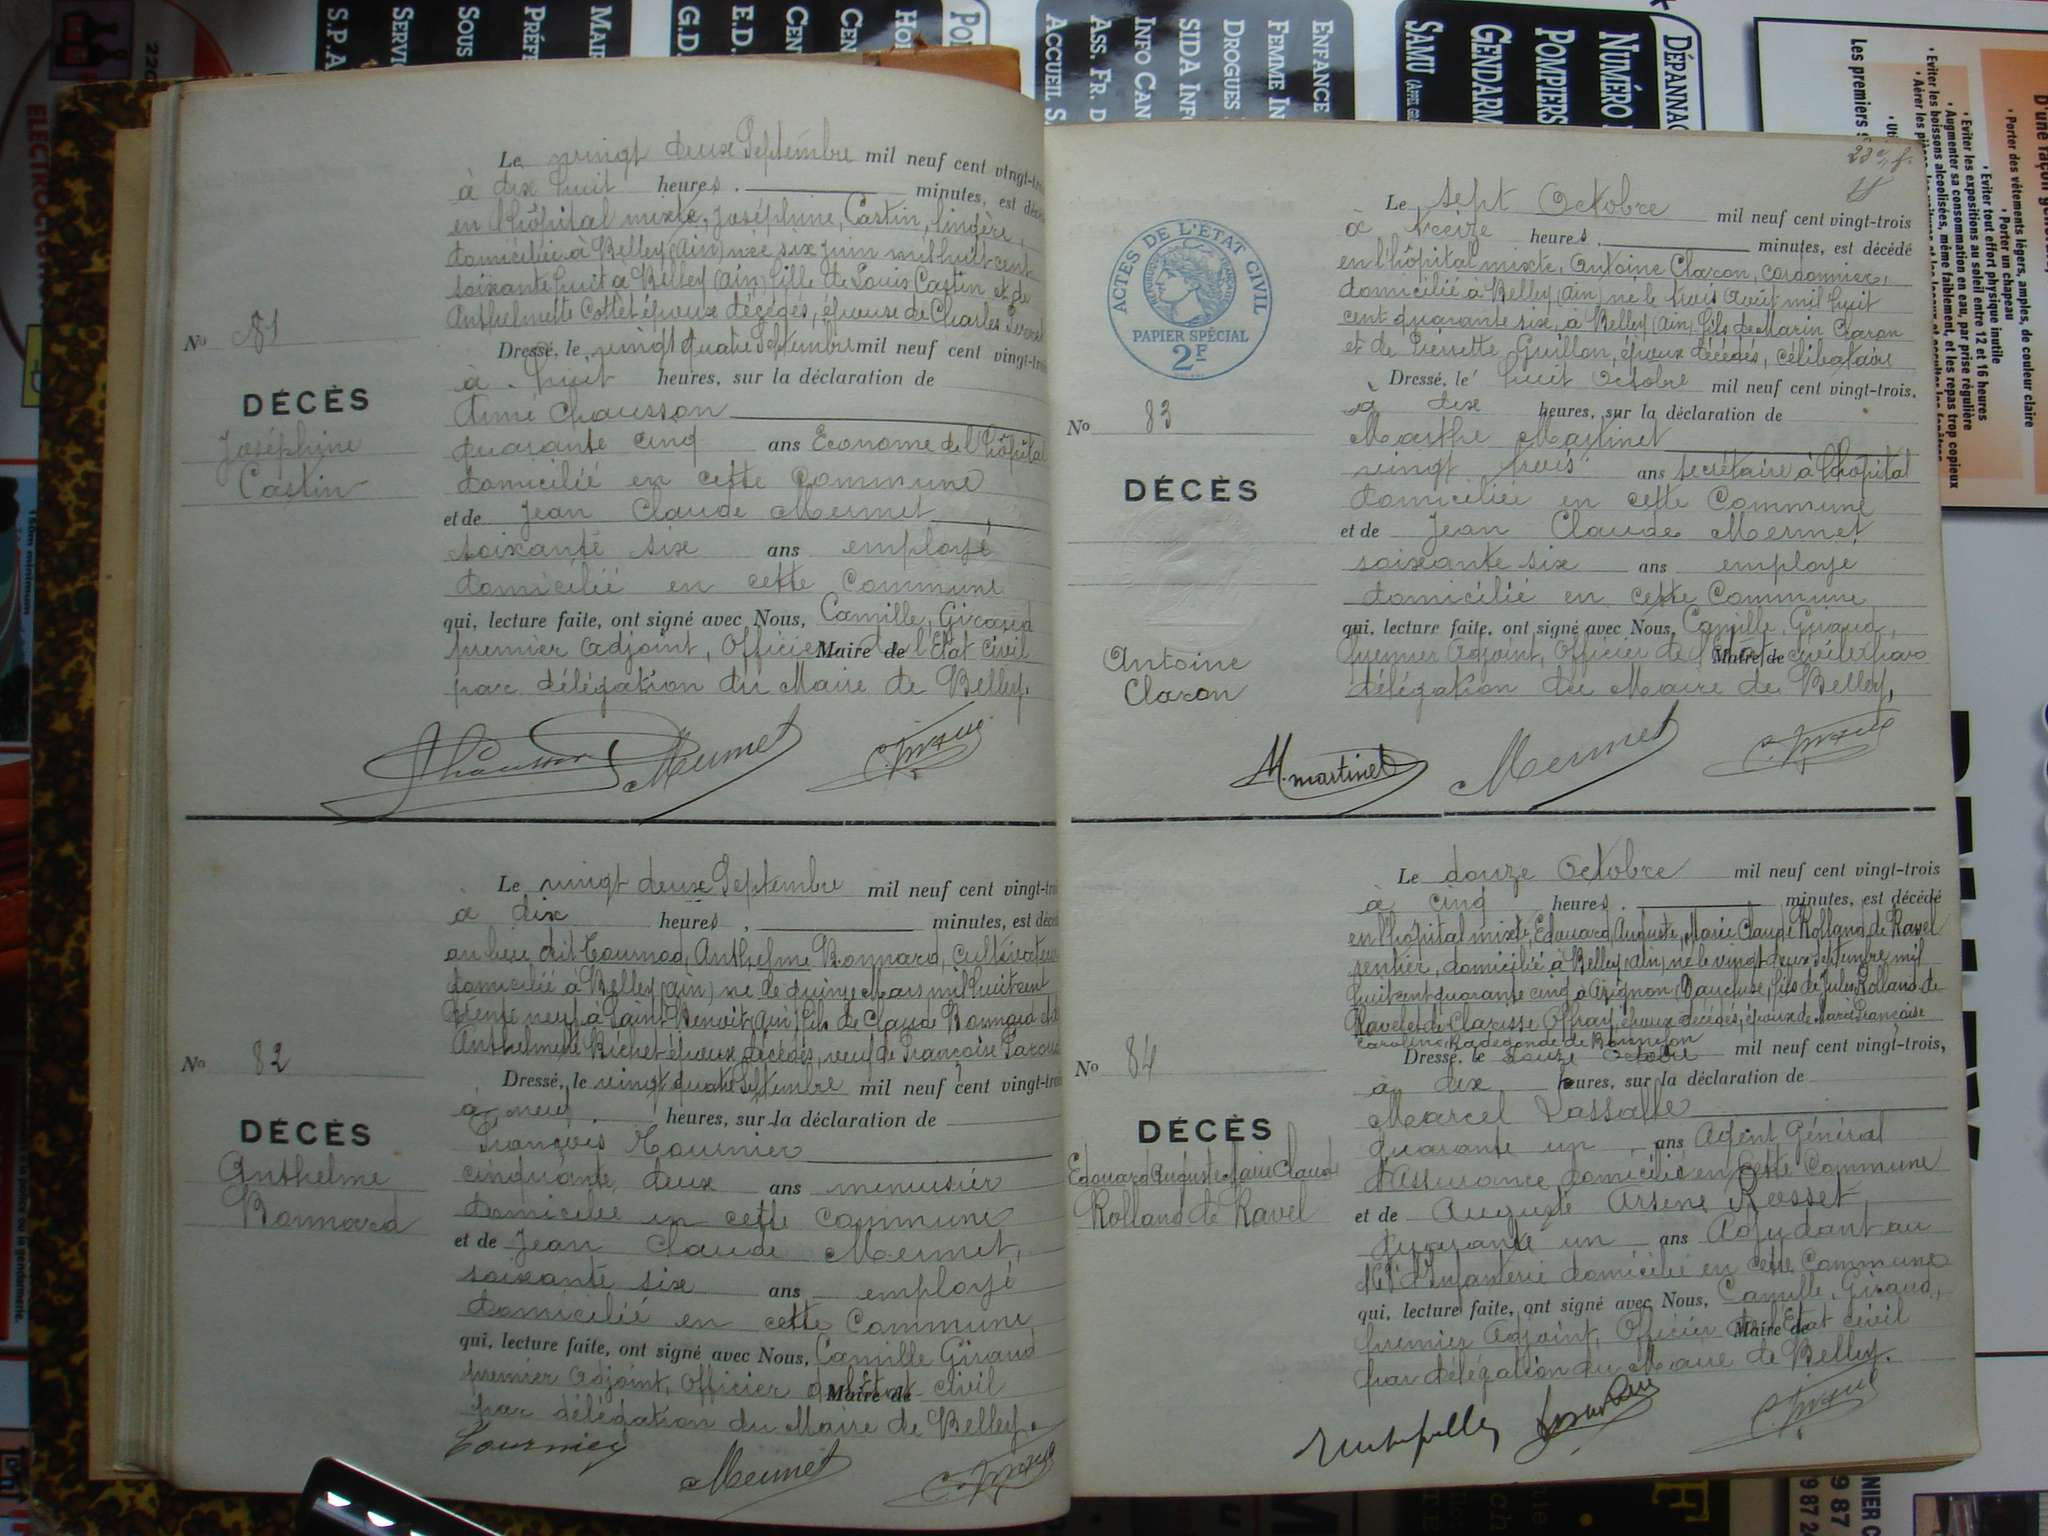 Le vingt deux Septembre mil neuf cent vingt-trois
à dix huit heures, minutes, est décédé
en l'hôpital mixte, Joséphine, Castin, lingère,
domiciliée à Belley (Ain) née six juin mil huit cent
soixante huit à Belley (Ain) fille de Louis Castin et de
Anthelmette Cottet époux décédés, épouse de Charles
No 81
Dressé, le vingt quatre Septembre mil neuf cent vingt-trois
à huit heures, sur la déclaration de
DÉCÈS
Joséphine
Castin
Aimé Chausson
quarante cinq ans Econome de l'hôpital
domicilié en cette commune
et de Jean Claude Mermet,
soixante six ans employé
domicilié en cette Commune
qui, lecture faite, ont signé avec Nous, Camille, Giraud
premier adjoint, Officier de l'Etat civil Maire de
par délégation du Maire de Belley.
Chausson Mermet C. Giraud
Le vingt deux Septembre mil neuf cent vingt-trois
à dix heures, minutes, est décédé
au lieu dit Coumod, Anthelme Bonnard, cultivateur
domicilié à Belley (Ain) né le quinze Mars mil huit cent
trente neuf à Saint Benoit (Ain) fils de Claude Bonnard et d'
Anthelmette Richet époux décédés, veuf de Françoise
No 82
Dressé, le vingt quatre Septembre mil neuf cent vingt-trois
à neuf heures, sur la déclaration de
DÉCÈS
Anthelme
Bonnard
François Tournier
cinquante deux ans menuisier
domicilié en cette commune
et de Jean Claude Mermet,
soixante six ans employé
domicilié en cette Commune
qui, lecture faite, ont signé avec Nous, Camille Giraud
premier adjoint, Officier de l'Etat civil Maire de
par délégation du Maire de Belley.
Tournier
Mermet C. Giraud
ACTES DE L'ÉTAT CIVIL
PAPIER SPÉCIAL
2F
Le sept Octobre mil neuf cent vingt-trois
à treize heures, minutes, est décédé
en l'hôpital mixte, Antoine Claron, cordonnier,
domicilié à Belley (Ain) né le trois Août mil huit
cent quarante six, à Belley (Ain) fils de Marin Claron
et de Pierrette Guillon, époux décédés, célibataire
Dressé, le huit Octobre mil neuf cent vingt-trois.
à dix heures, sur la déclaration de
No 83
DÉCÈS
Antoine
Claron
Marthe Martinet
vingt trois ans secrétaire à l'hôpital
domiciliée en cette Commune
et de Jean Claude Mermet
soixante six ans employé
domicilié en cette Commune
qui, lecture faite, ont signé avec Nous, Camille, Giraud,
premier Adjoint, Officier de l'Etat civil par Maire de
délégation du Maire de Belley,
M. martinet Mermet C. Giraud
Le douze Octobre mil neuf cent vingt-trois
à cinq heures, minutes, est décédé
en l'hôpital mixte, Edouard, Auguste, Marie Claude Rolland de Ravel
rentier, domicilié à Belley (Ain) né le vingt deux septembre mil
huit cent quarante cinq à Avignon (Vaucluse, fils de Jules Rolland de
Ravel et de Clarisse Offray, époux décédés, époux de Marie Françoise
Caroline Radegonde de Bonnefon
Dressé, le douze Octobre mil neuf cent vingt-trois,
No 84
à dix heures, sur la déclaration de
DÉCÈS
Edouard Auguste Marie Claude
Rolland de Ravel
Marcel Lassalle
quarante un ans Agent Général
d'Assurance, domicilié en cette Commune
et de Auguste Arsène Rosset
quarante un ans Adjudant au
d'Infanterie domicilié en cette Commune
qui, lecture faite, ont signé avec Nous, Camille, Giraud,
premier Adjoint, Officier de l'Etat civil Maire de
par délégation du Maire de Belley.
C. Giraud
S.P.A
SERVI
SOUS
PRÉFE
MAIR
G.D.
E.D.
CENT
CENT
HÔP
ACCUEIL S.
ASS. FR. D
INFO CAN
SIDA INF
DROGUES
FEMME IN
ENFANCE
SAMU
GENDARM
POMPIERS
NUMÉRO
DÉPANNAG
Les premiers s
• Eviter les boissons alcoolisées, même faiblement, et les repas trop copieux
• Augmenter sa consommation en eau, par prise régulière
• Eviter les expositions au soleil entre 12 et 16 heures
• Eviter tout effort physique inutile
• Porter un chapeau
• Porter des vêtements légers, amples, de couleur claire
D'une façon géné